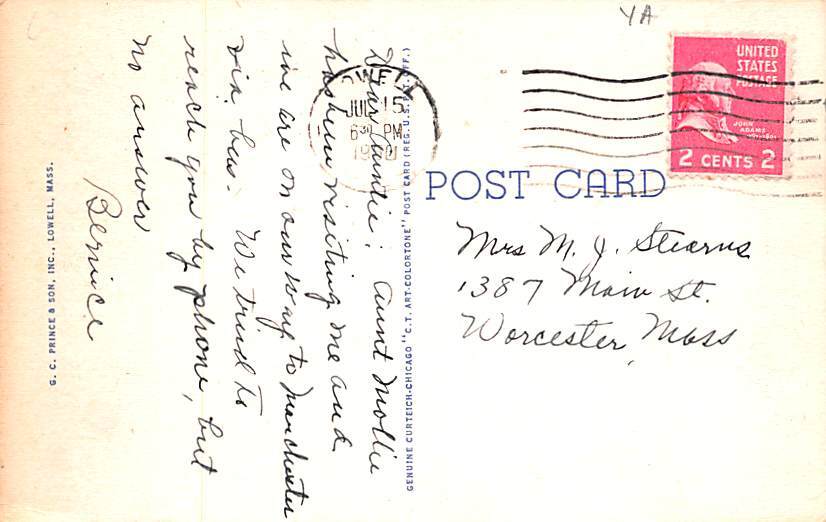 YA
LOWELL
JUL 15
6 30 PM
UNITED
STATES
POSTAGE
JOHN
ADAMS
2 CENTS 2
POST CARD
Mrs M. J. Stearns
1387 Main St.
Worcester, Mass
Dear Auntie; Aunt Mollie
has been visiting me and
we are on our way to Manchester
via bus. We tried to
reach you by phone, but
no answer
Bernice
GENUINE CURTEICH-CHICAGO "C.T. ART-COLORTONE" POST CARD (REG. U.S. PAT. OFF.)
G. C. PRINCE & SON, INC., LOWELL, MASS.